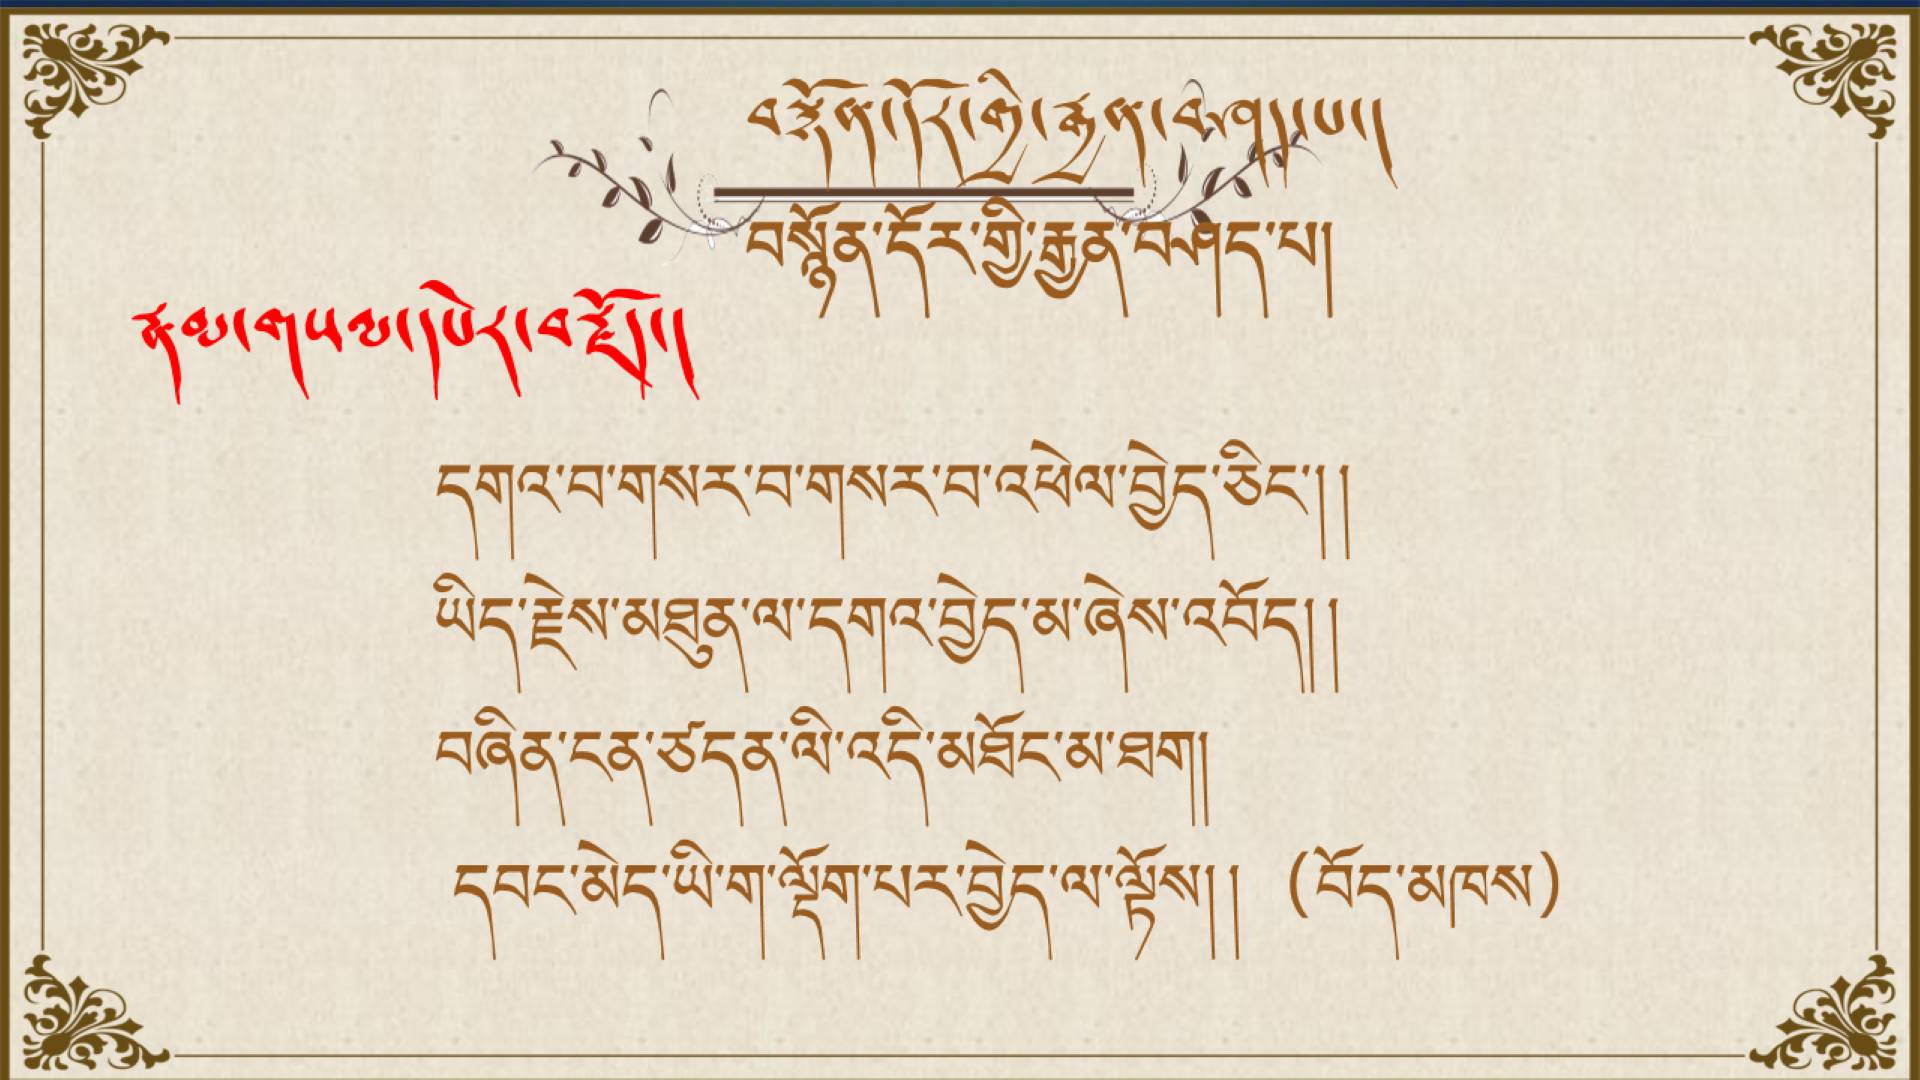 བསྙོན་དོར་གྱི་རྒྱན་བཤད་པ།
བསྙོན་དོར་གྱི་རྒྱན་བཤད་པ།
དཔེར་བརྗོད།
དགའ་བ་གསར་བ་གསར་བ་འཕེལ་བྱེད་ཅིང་།།
ཡིད་རྗེས་མཐུན་ལ་དགའ་བྱེད་མ་ཞེས་འབོད།།
བཞིན་ངན་ཙདན་ལི་འདི་མཐོང་མ་ཐག།
དབང་མེད་ཡི་ག་ལྡོག་པར་བྱེད་ལ་ལྟོས།། (བོད་མཁས)